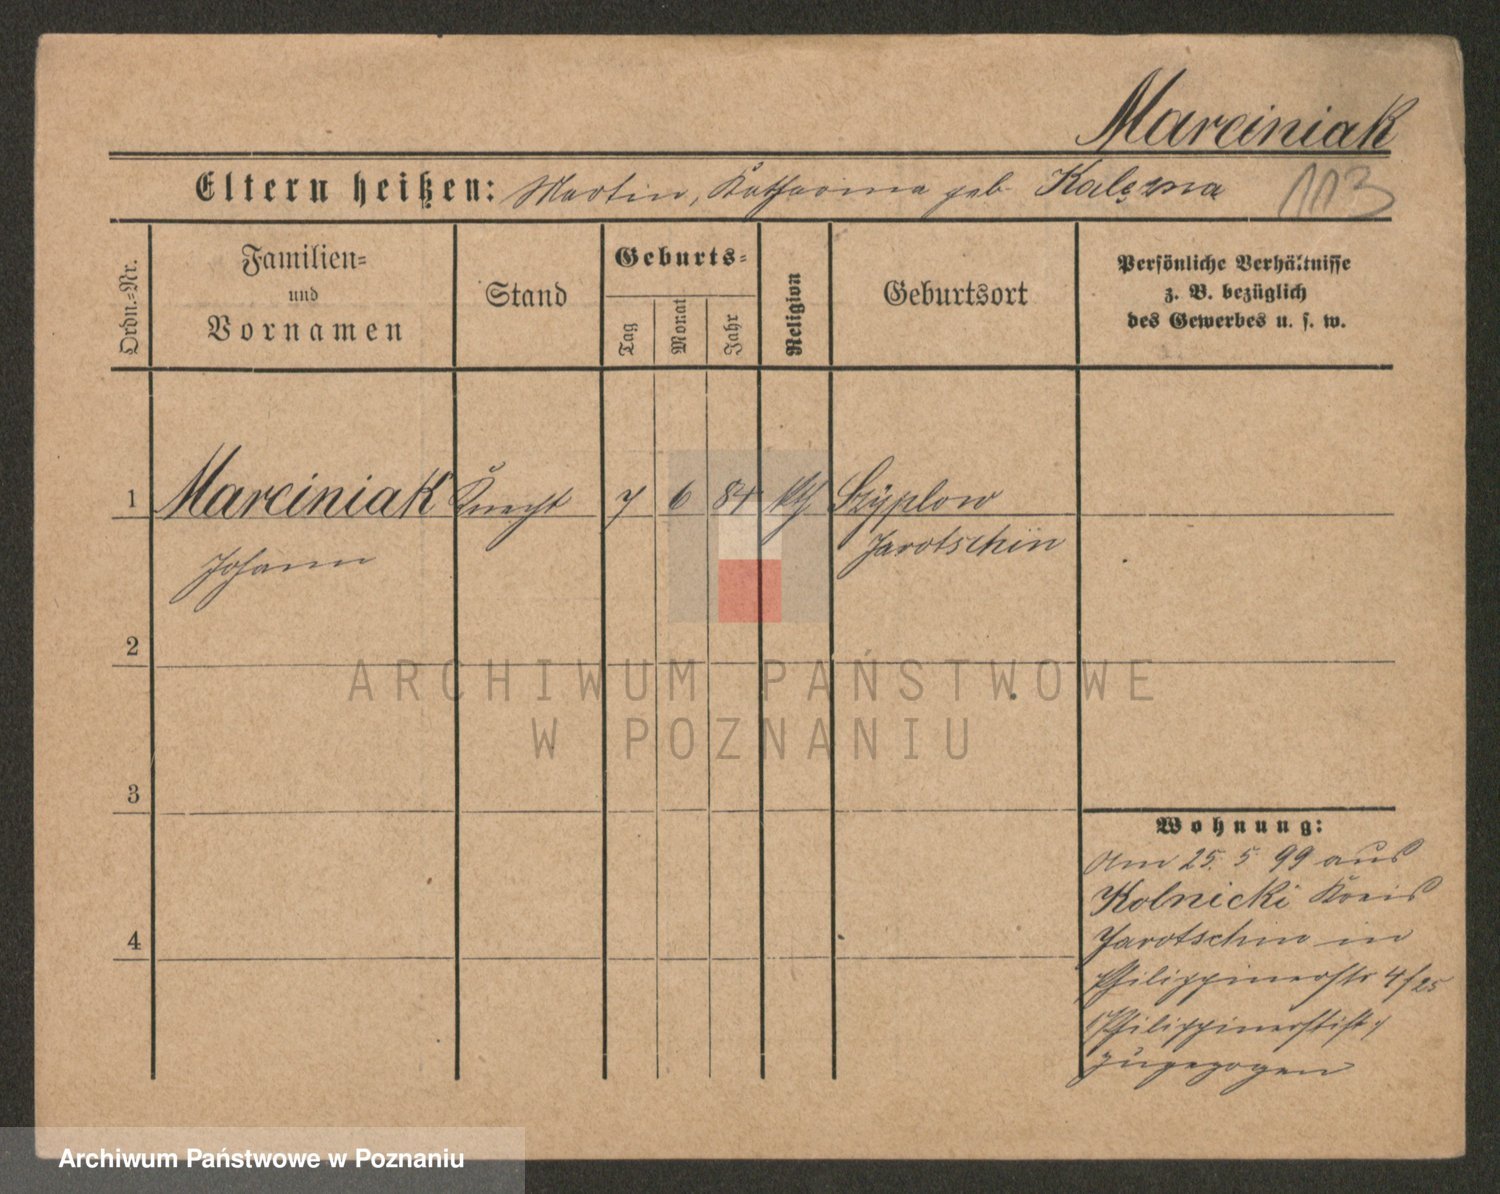 Marciniak
Eltern heißen: Martin, Katharina geb Kalęzna
113
Ordn.-Nr.
Familien-
und
Vornamen
Stand
Geburts-
Tag
Monat
Jahr
Religion
Geburtsort
Persönliche Verhältnisse
z. B. bezüglich
des Gewerbes u. s. w.
1 Marciniak Knecht 7 6 84 kth Szyplow
Johann Jarotschin
2
3
4
ARCHIWUM PAŃSTWOWE
W POZNANIU
Wohnung:
Am 25. 5 99 aus
Kolnicki Kreis
Jarotschin in
Philippinerstr 4/25
(Philippinerstift)
zugezogen
Archiwum Państwowe w Poznaniu